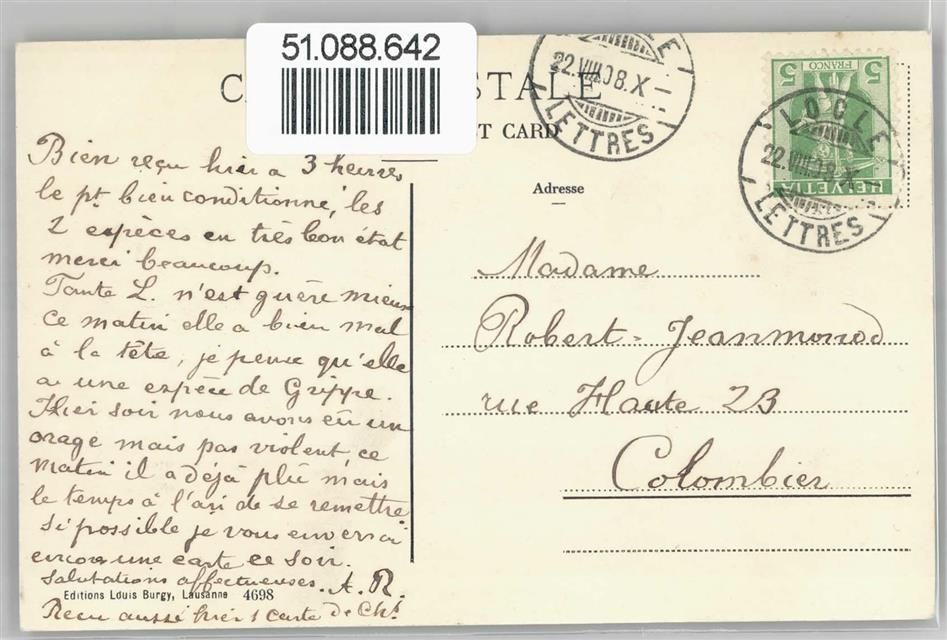 51.088.642
C STALE
T CARD
LE
22.VIII.08.X
LETTRES
5 FRANCO 5
HELVETIA
LOCLE
22.VIII.08.X
LETTRES
Adresse
Bien reçu hier à 3 heures
le pt. bien conditionné, les
2 espèces en très bon état
merci beaucoup.
Tante L. n'est guère mieux
ce matin elle a bien mal
à la tête, je pense qu'elle
a une espèce de Grippe.
Hier soir nous avons eu un
orage mais pas violent, ce
matin il a déjà plû mais
le temps à l'air de se remettre
si possible je vous enverrai
encore une carte ce soir.
salutations affectueuses. A. R.
Editions Louis Burgy, Lausanne 4698
Reçu aussi hier 1 carte de Chs
Madame
Robert-Jeanmonod
rue Haute 23
Colombier